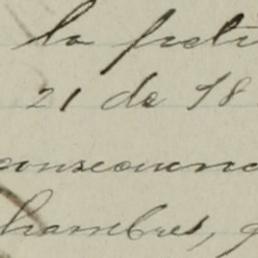 la peti
21 de 18
consecuenc
hambres, q